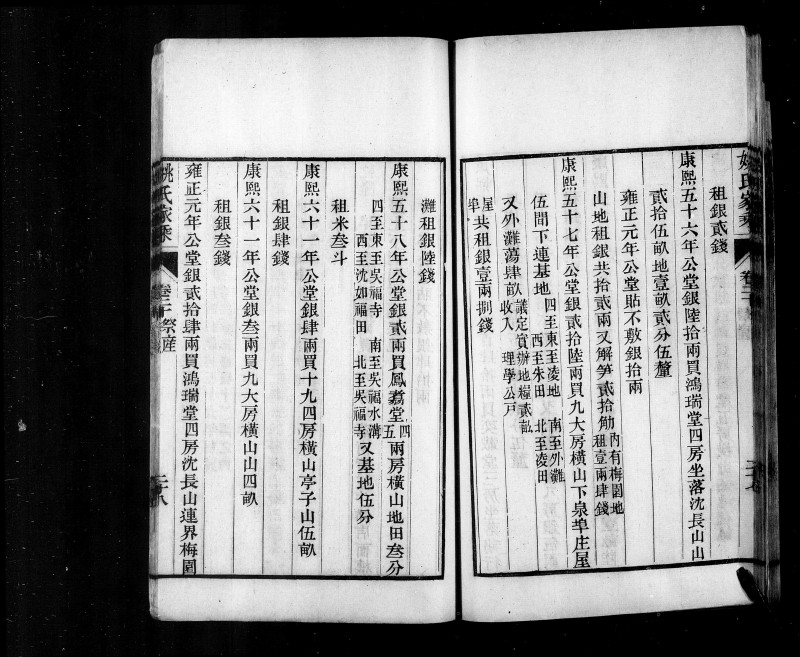 姚氏家乘
卷三
二十七
租銀貳錢
康熙五十六年公堂銀陸拾兩買鴻瑞堂四房坐落沈長山山
貳拾伍畝地壹畝貳分伍釐
雍正元年公堂貼不敷銀拾兩
山地租銀共拾貳兩又解笋貳拾觔 內有梅園地
租壹兩肆錢
康熙五十七年公堂銀貳拾陸兩買九大房橫山下泉埠庄屋
伍間下連基地 四至東至凌地 南至外灘
西至朱田 北至凌田
又外灘蕩肆畝 議定賞辦地糧貳畝
收入 理學公戶
屋
埠共租銀壹兩捌錢
灘租銀陸錢
康熙五十八年公堂銀貳兩買鳳翥堂四
五兩房橫山地田叁分
四至東至吳福寺 南至吳福水溝
西至沈如福田 北至吳福寺 又基地伍分
租米叁斗
康熙六十一年公堂銀肆兩買十九四房橫山亭子山伍畝
租銀肆錢
康熙六十一年公堂銀叁兩買九大房橫山山四畝
租銀叁錢
雍正元年公堂銀貳拾肆兩買鴻瑞堂四房沈長山連界梅園
姚氏家乘
卷三祭產
二十八